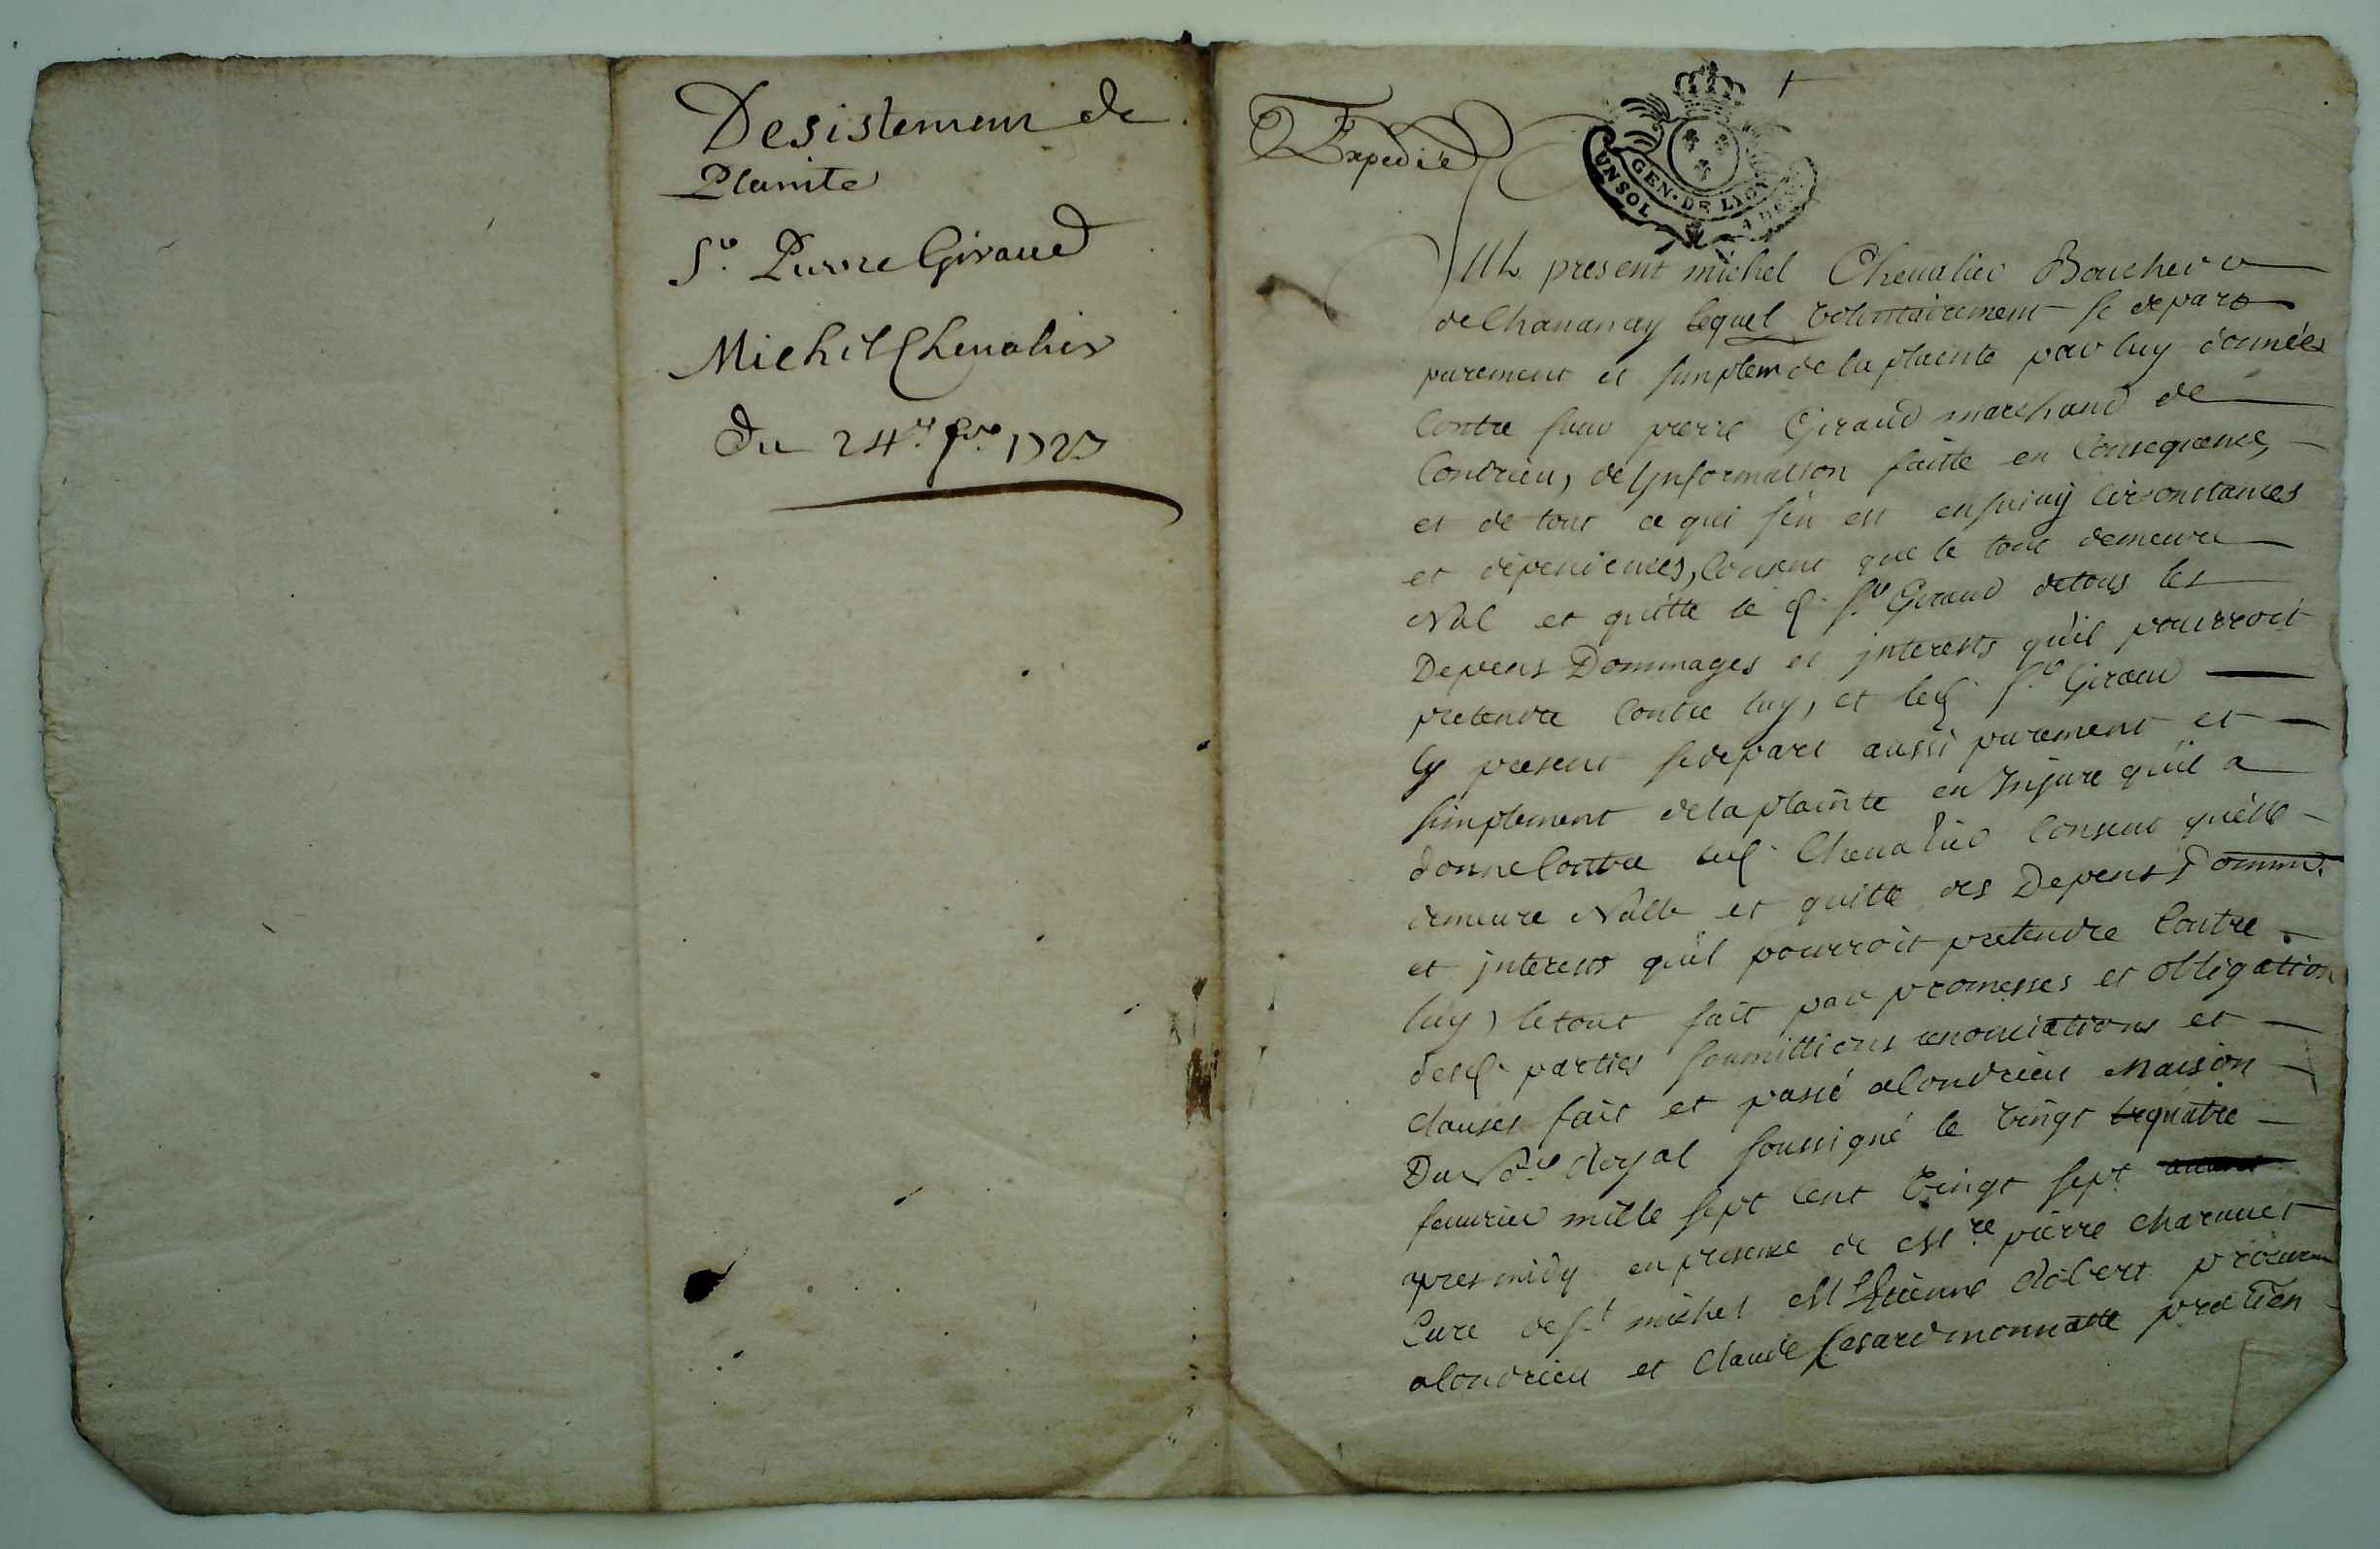 Desistement de
Plainte
Sr. Pierre Giraud
Michel Chevalier
Du 24e. fvr. 1727
Expedié
GEN. DE LYON
UN SOL
present michel Chevalier Boucher
de Chavanay lequel volontairement se depart
purement et simplemt de la plainte par luy donnée
Contre sieur pierre Giraud marchand de
Condrieu, de l'jnformation faitte en Consequence,
et de tout ce qui s'en est ensuivy Circonstances
et dépendences, Consent que le tout demeure
Nul et quitte le d. Sr Giraud de tous les
Depens Dommages et jnterests qu'il pourroit
pretendre Contre luy, et led. Sr Giraud
Cy present se depart aussi purement et
simplement de la plainte en Injure qu'il a
donné Contre led. Chevalier Consent qu'elle
demeure Nulle et quitte des Depens Domm.
et jnterests qu'il pourroit pretendre Contre
luy, le tout fait par promesses et obligation
desd. parties soumittions renonciations et
clauses fait et passé a Condrieu Maison
Du Nore Royal soussigné le vingt quatre
fevrier mille sept cent vingt sept
apres midy en presence de Mre pierre
Curé de St michel Me Etienne Robert procureur
a Condrieu et Claude praticien